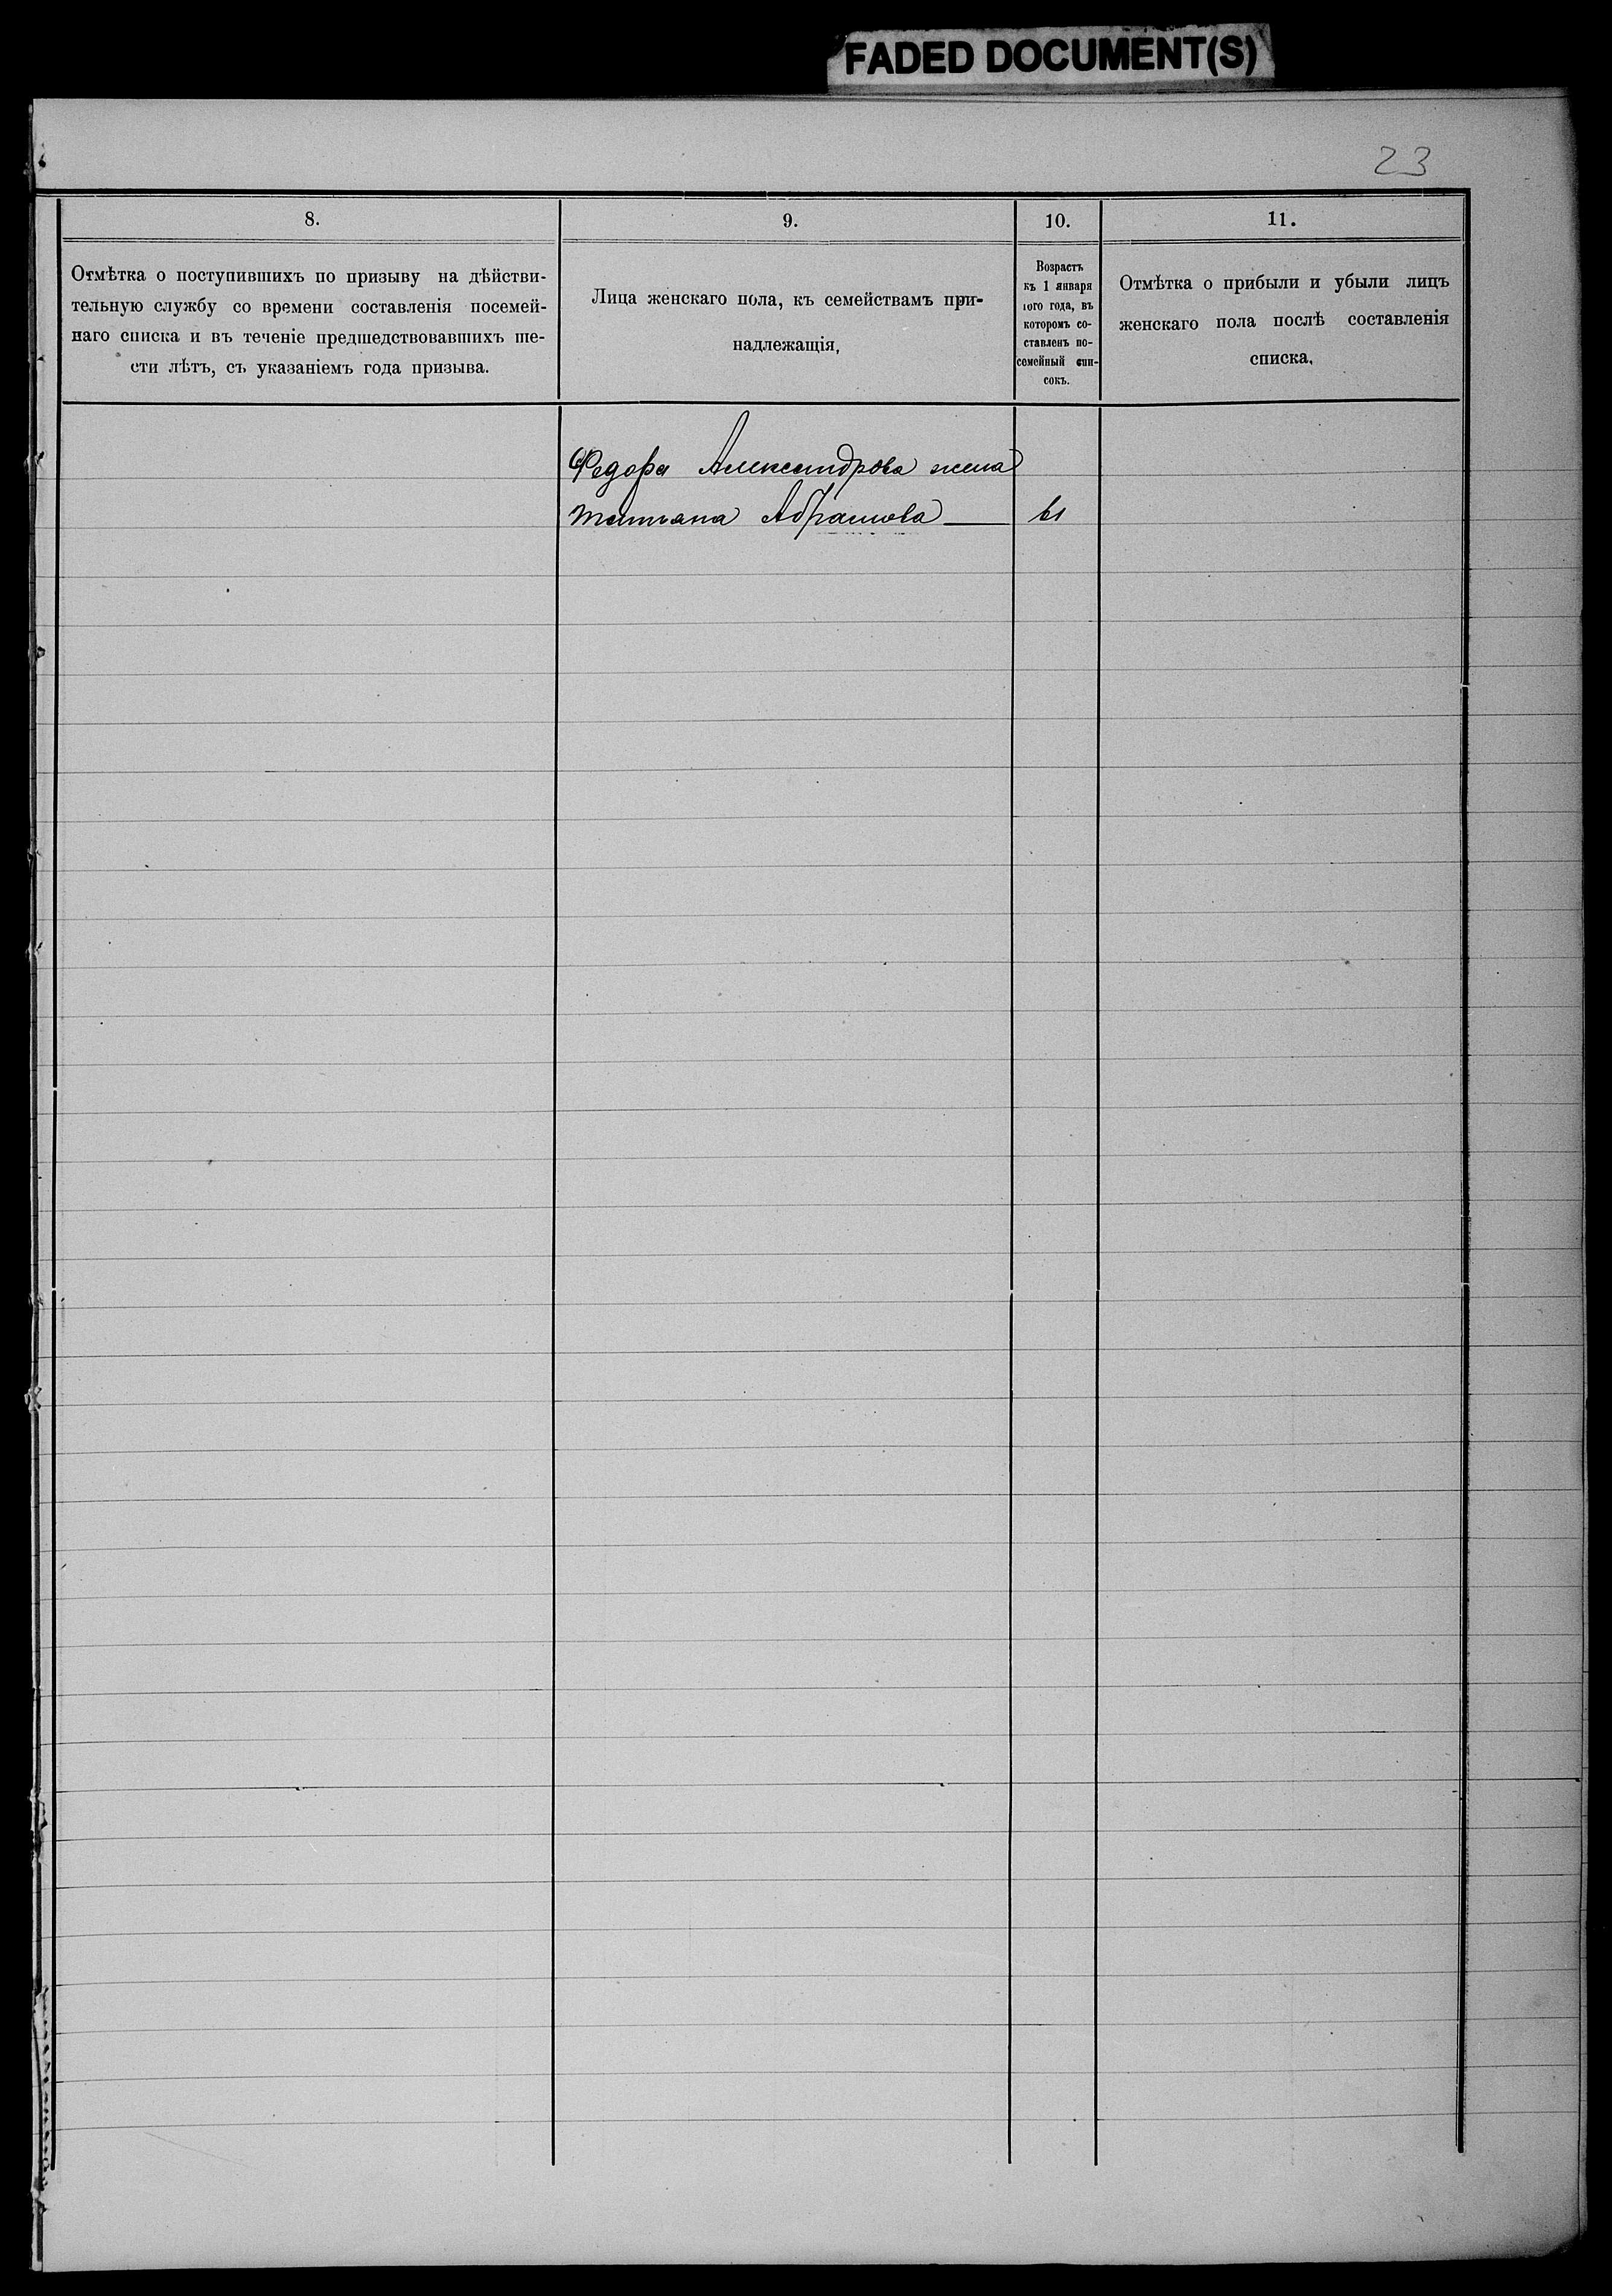 FADED DOCUMENT(S)
23
8.
9.
10.
11.
Отмѣтка о поступившихъ по призыву на дѣйстви-
тельную службу со времени составленія посемей-
наго списка и въ теченіе предшедствовавшихъ ше-
сти лѣтъ, съ указаніемъ года призыва.
Лица женскаго пола, къ семействамъ при-
надлежащія,
Возрастъ
къ 1 января
того года, въ
которомъ со-
ставленъ по-
семейный спи-
сокъ.
Отмѣтка о прибыли и убыли лицъ
женскаго пола послѣ составленія
списка.
Федора Александрова жена
Татьяна Абрамова 61